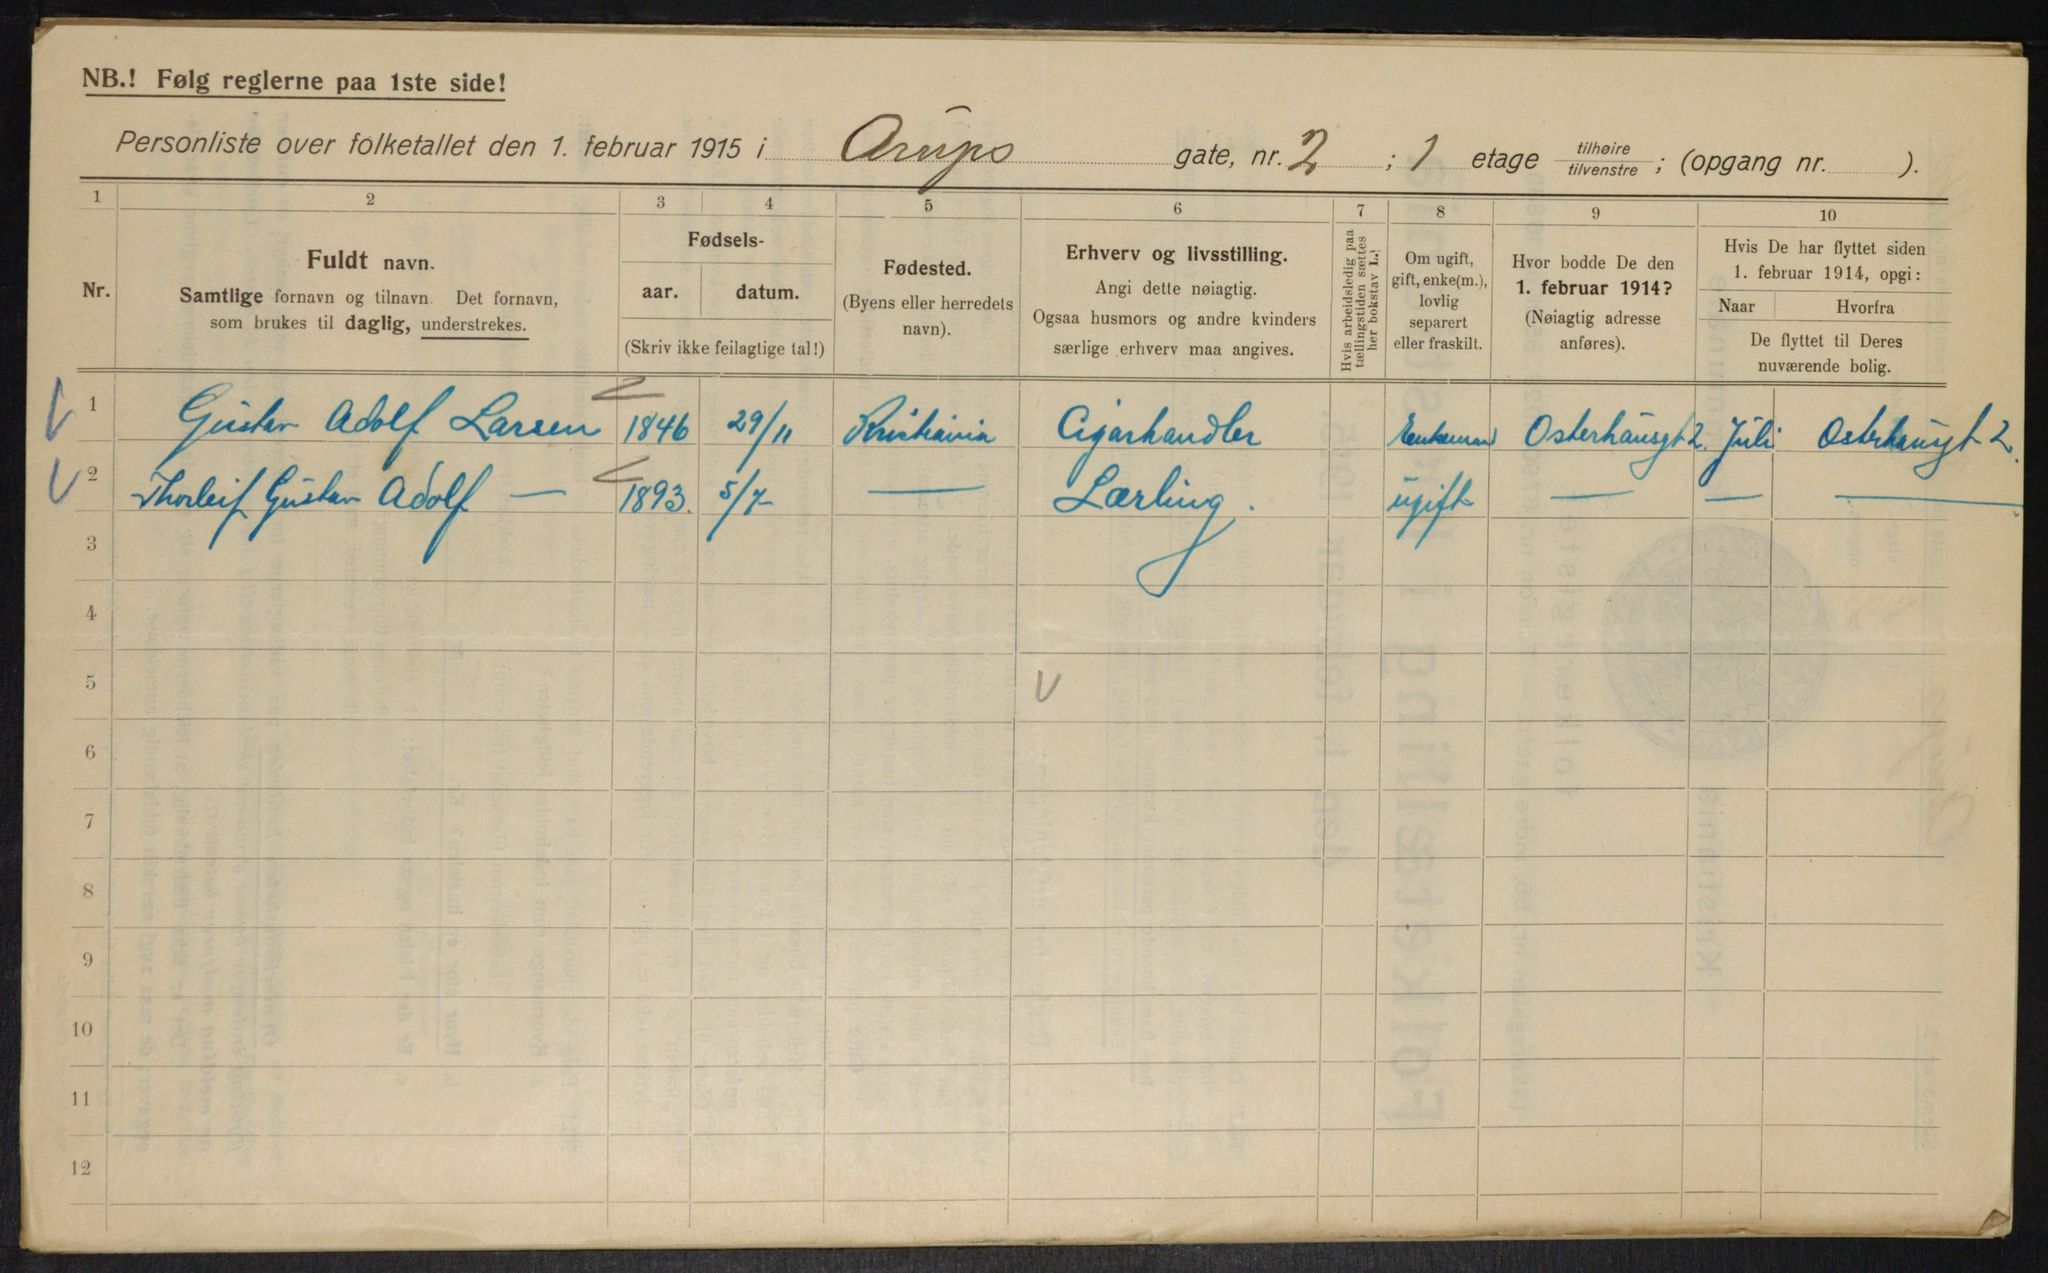 NB.! Følg reglerne paa 1ste side!
Personliste over folketallet den 1. februar 1915 i Arups gate, nr. 2 ; 1 etage tilhøire/tilvenstre ; (opgang nr. ).
1 2 3 4 5 6 7 8 9 10
Nr.
Fuldt navn.
Samtlige fornavn og tilnavn. Det fornavn,
som brukes til daglig, understrekes.
Fødsels-
aar. datum.
(Skriv ikke feilagtige tal!)
Fødested.
(Byens eller herredets
navn).
Erhverv og livsstilling.
Angi dette nøiagtig.
Ogsaa husmors og andre kvinders
særlige erhverv maa angives.
Hvis arbeidsledig paa
tællingstiden sættes
her bokstav L.!
Om ugift,
gift, enke(m.),
lovlig
separert
eller fraskilt.
Hvor bodde De den
1. februar 1914?
(Nøiagtig adresse
anføres).
Hvis De har flyttet siden
1. februar 1914, opgi:
Naar Hvorfra
De flyttet til Deres
nuværende bolig.
1 Gustav Adolf Larsen 1846 29/11 Kristiania Cigarhandler Enkemand Osterhausgt 2. Juli Osterhausgt 2.
2 Thorleif Gustav Adolf — 1893. 5/7 — Lærling. ugift — — —
3
4
5
6
7
8
9
10
11
12